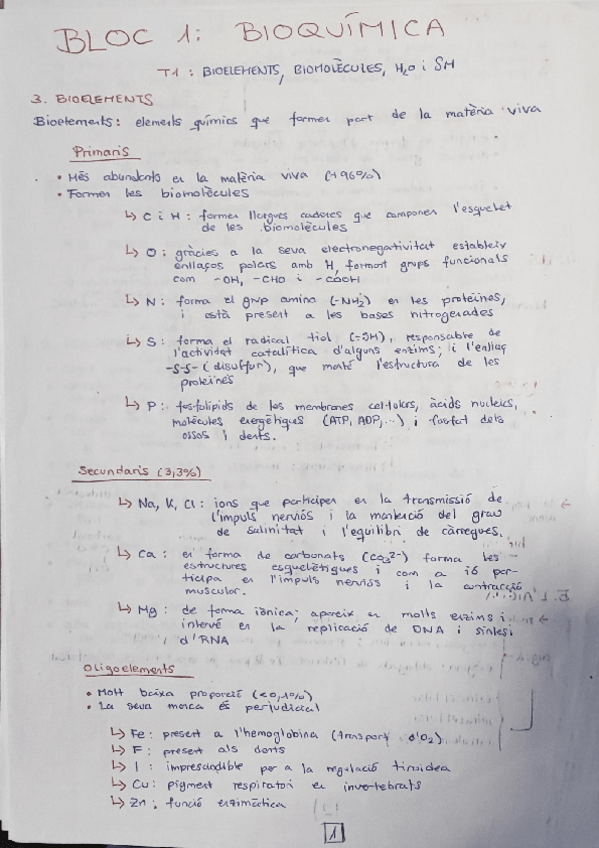 BLOC 1: BIOQUÍMICA
T1: BIOELEMENTS, BIOMOLÈCULES, H2O i SM
3. BIOELEMENTS
Bioelements: elements químics que formen part de la matèria viva
Primaris
• Més abundants en la matèria viva (+96%)
• Formen les biomolècules
↳ C i H: formen llargues cadenes que componen l'esquelet
de les biomolècules
↳ O: gràcies a la seva electronegativitat estableix
enllaços polars amb H, formant grups funcionals
com -OH, -CHO i -COOH
↳ N: forma el grup amino (-NH2) en les proteïnes,
i està present a les bases nitrogenades
↳ S: forma el radical tiol (-SH), responsable de
l'activitat catalítica d'alguns enzims; i l'enllaç
-S-S- (disulfur), que manté l'estructura de les
proteïnes
↳ P: fosfolípids de les membranes cel·lulars, àcids nucleics,
molècules energètiques (ATP, ADP,...) i fosfat dels
ossos i dents.
Secundaris (3,3%)
↳ Na, K, Cl: ions que participen en la transmissió de
l'impuls nerviós i la mantenció del grau
de salinitat i l'equilibri de càrregues.
↳ Ca: en forma de carbonats (CO3 2-) forma les
estructures esquelètiques i com a ió par-
ticipa en l'impuls nerviós i la contracció
muscular.
↳ Mg: de forma iònica; apareix en molts enzims i
intervé en la replicació de DNA i síntesi
d'RNA
Oligoelements
• Molt baixa proporció (<0,1%)
• La seva manca és perjudicial
↳ Fe: present a l'hemoglobina (transport d'O2)
↳ F: present als dents
↳ I: imprescindible per a la regulació tiroidea
↳ Cu: pigment respiratori en invertebrats
↳ Zn: funció enzimàtica
1